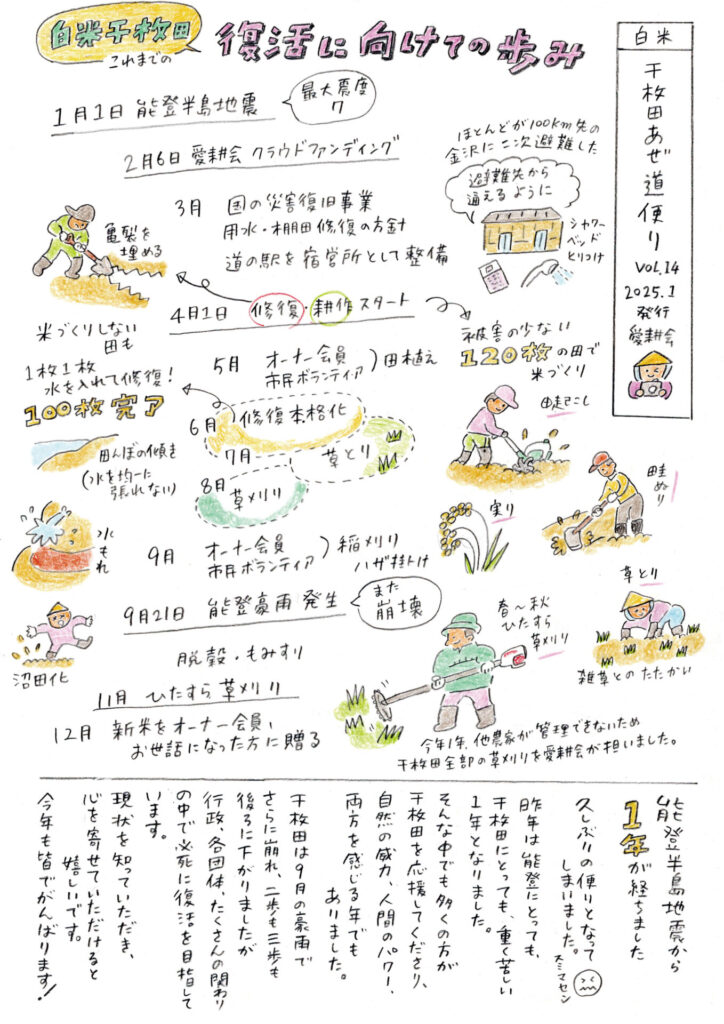 白米千枚田
これまでの
復活に向けての歩み
白米
千枚田あぜ道便り
VOL.14
2025.1
発行
愛耕会
1月1日 能登半島地震
最大震度
7
2月6日 愛耕会 クラウドファンディング
ほとんどが100km先の
金沢に二次避難した
避難先から
通えるように
シャワー
ベッド
とりつけ
3月 国の災害復旧事業
用水・棚田修復の方針
道の駅を宿営所として整備
亀裂を
埋める
4月1日 修復・耕作スタート
米づくりしない
田も
1枚1枚
水を入れて修復!
100枚完了
田んぼの傾き
(水を均一に
張れない)
水もれ
沼田化
5月 オーナー会員
市民ボランティア
)田植え
被害の少ない
120枚の田で
米づくり
田起こし
畦ぬり
6月 修復本格化
7月 草とり
8月 草刈り
実り
9月 オーナー会員
市民ボランティア
)稲刈り
ハザ掛け
草とり
雑草とのたたかい
9月21日 能登豪雨発生
また
崩壊
春~秋
ひたすら
草刈り
脱穀・もみすり
11月 ひたすら草刈り
12月 新米をオーナー会員、
お世話になった方に贈る
今年1年、他農家が管理できないため
千枚田全部の草刈りを愛耕会が担いました。
能登半島地震から
1年が経ちました
久しぶりの便りとなって
しまいました。スミマセン
昨年は能登にとっても、
千枚田にとっても、重く苦しい
1年となりました。
そんな中でも多くの方が
千枚田を応援してくださり、
自然の威力、人間のパワー、
両方を感じる年でも
ありました。
千枚田は9月の豪雨で
さらに崩れ、二歩も三歩も
後ろに下がりましたが
行政、各団体、たくさんの関わり
の中で必死に復活を目指して
います。
現状を知っていただき、
心を寄せていただけると
嬉しいです。
今年も皆でがんばります!